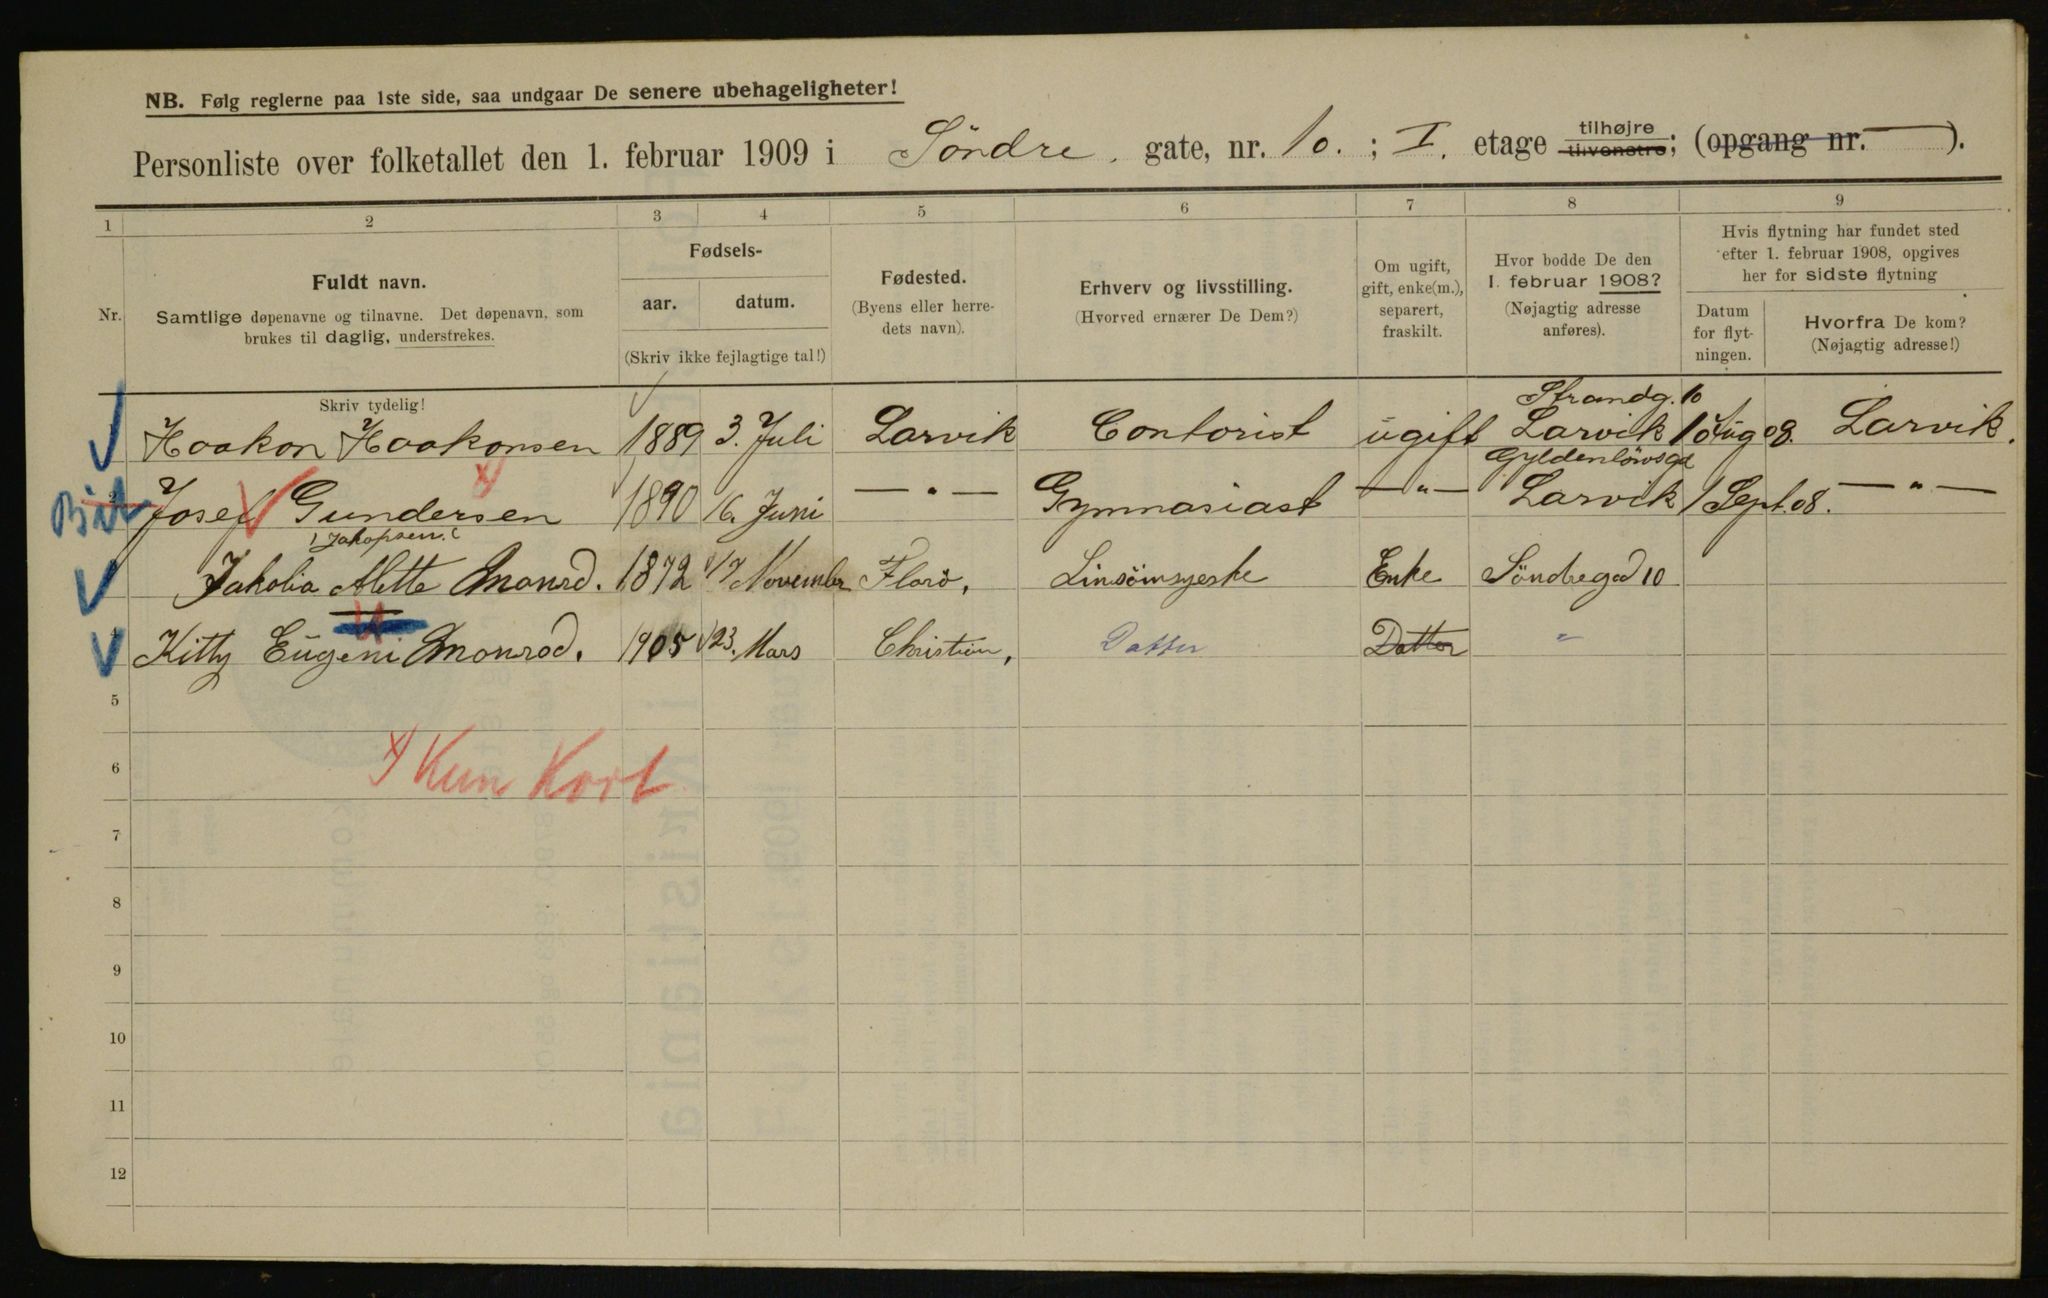 NB. Følg reglerne paa 1ste side, saa undgaar De senere ubehageligheter!
Personliste over folketallet den 1. februar 1909 i Söndre. gate, nr. 10. ; I. etage tilhøjre tilvenstre; (opgang nr. — ).
1 2 3 4 5 6 7 8 9
Nr.
Fuldt navn.
Samtlige døpenavne og tilnavne. Det døpenavn, som
brukes til daglig, understrekes.
Skriv tydelig!
Fødsels-
aar. datum.
(Skriv ikke fejlagtige tal!)
Fødested.
(Byens eller herre-
dets navn).
Erhverv og livsstilling.
(Hvorved ernærer De Dem?)
Om ugift,
gift, enke(m.),
separert,
fraskilt.
Hvor bodde De den
1. februar 1908?
(Nøjagtig adresse
anføres).
Hvis flytning har fundet sted
efter 1. februar 1908, opgives
her for sidste flytning
Datum
for flyt-
ningen.
Hvorfra De kom?
(Nøjagtig adresse!)
Strandg. 10
Haakon Haakonsen 1889 3. Juli Larvik Contorist ugift Larvik 10 Aug 08. Larvik.
Gyldenlövsgd
2 Josef Gundersen x) 1890 16. Juni — " — Gymnasiast — " — Larvik 1 Sept. 08. — " —
Jakopsen
Jakobia Alette Monrad. 1872 17 November Florö. Linsömsyeske Enke Söndregad 10
4 Kitty Eugeni Monrad. 1905 23. Mars Christian. Datter Datter "
5
x) Kun Kort
6
7
8
9
10
11
12